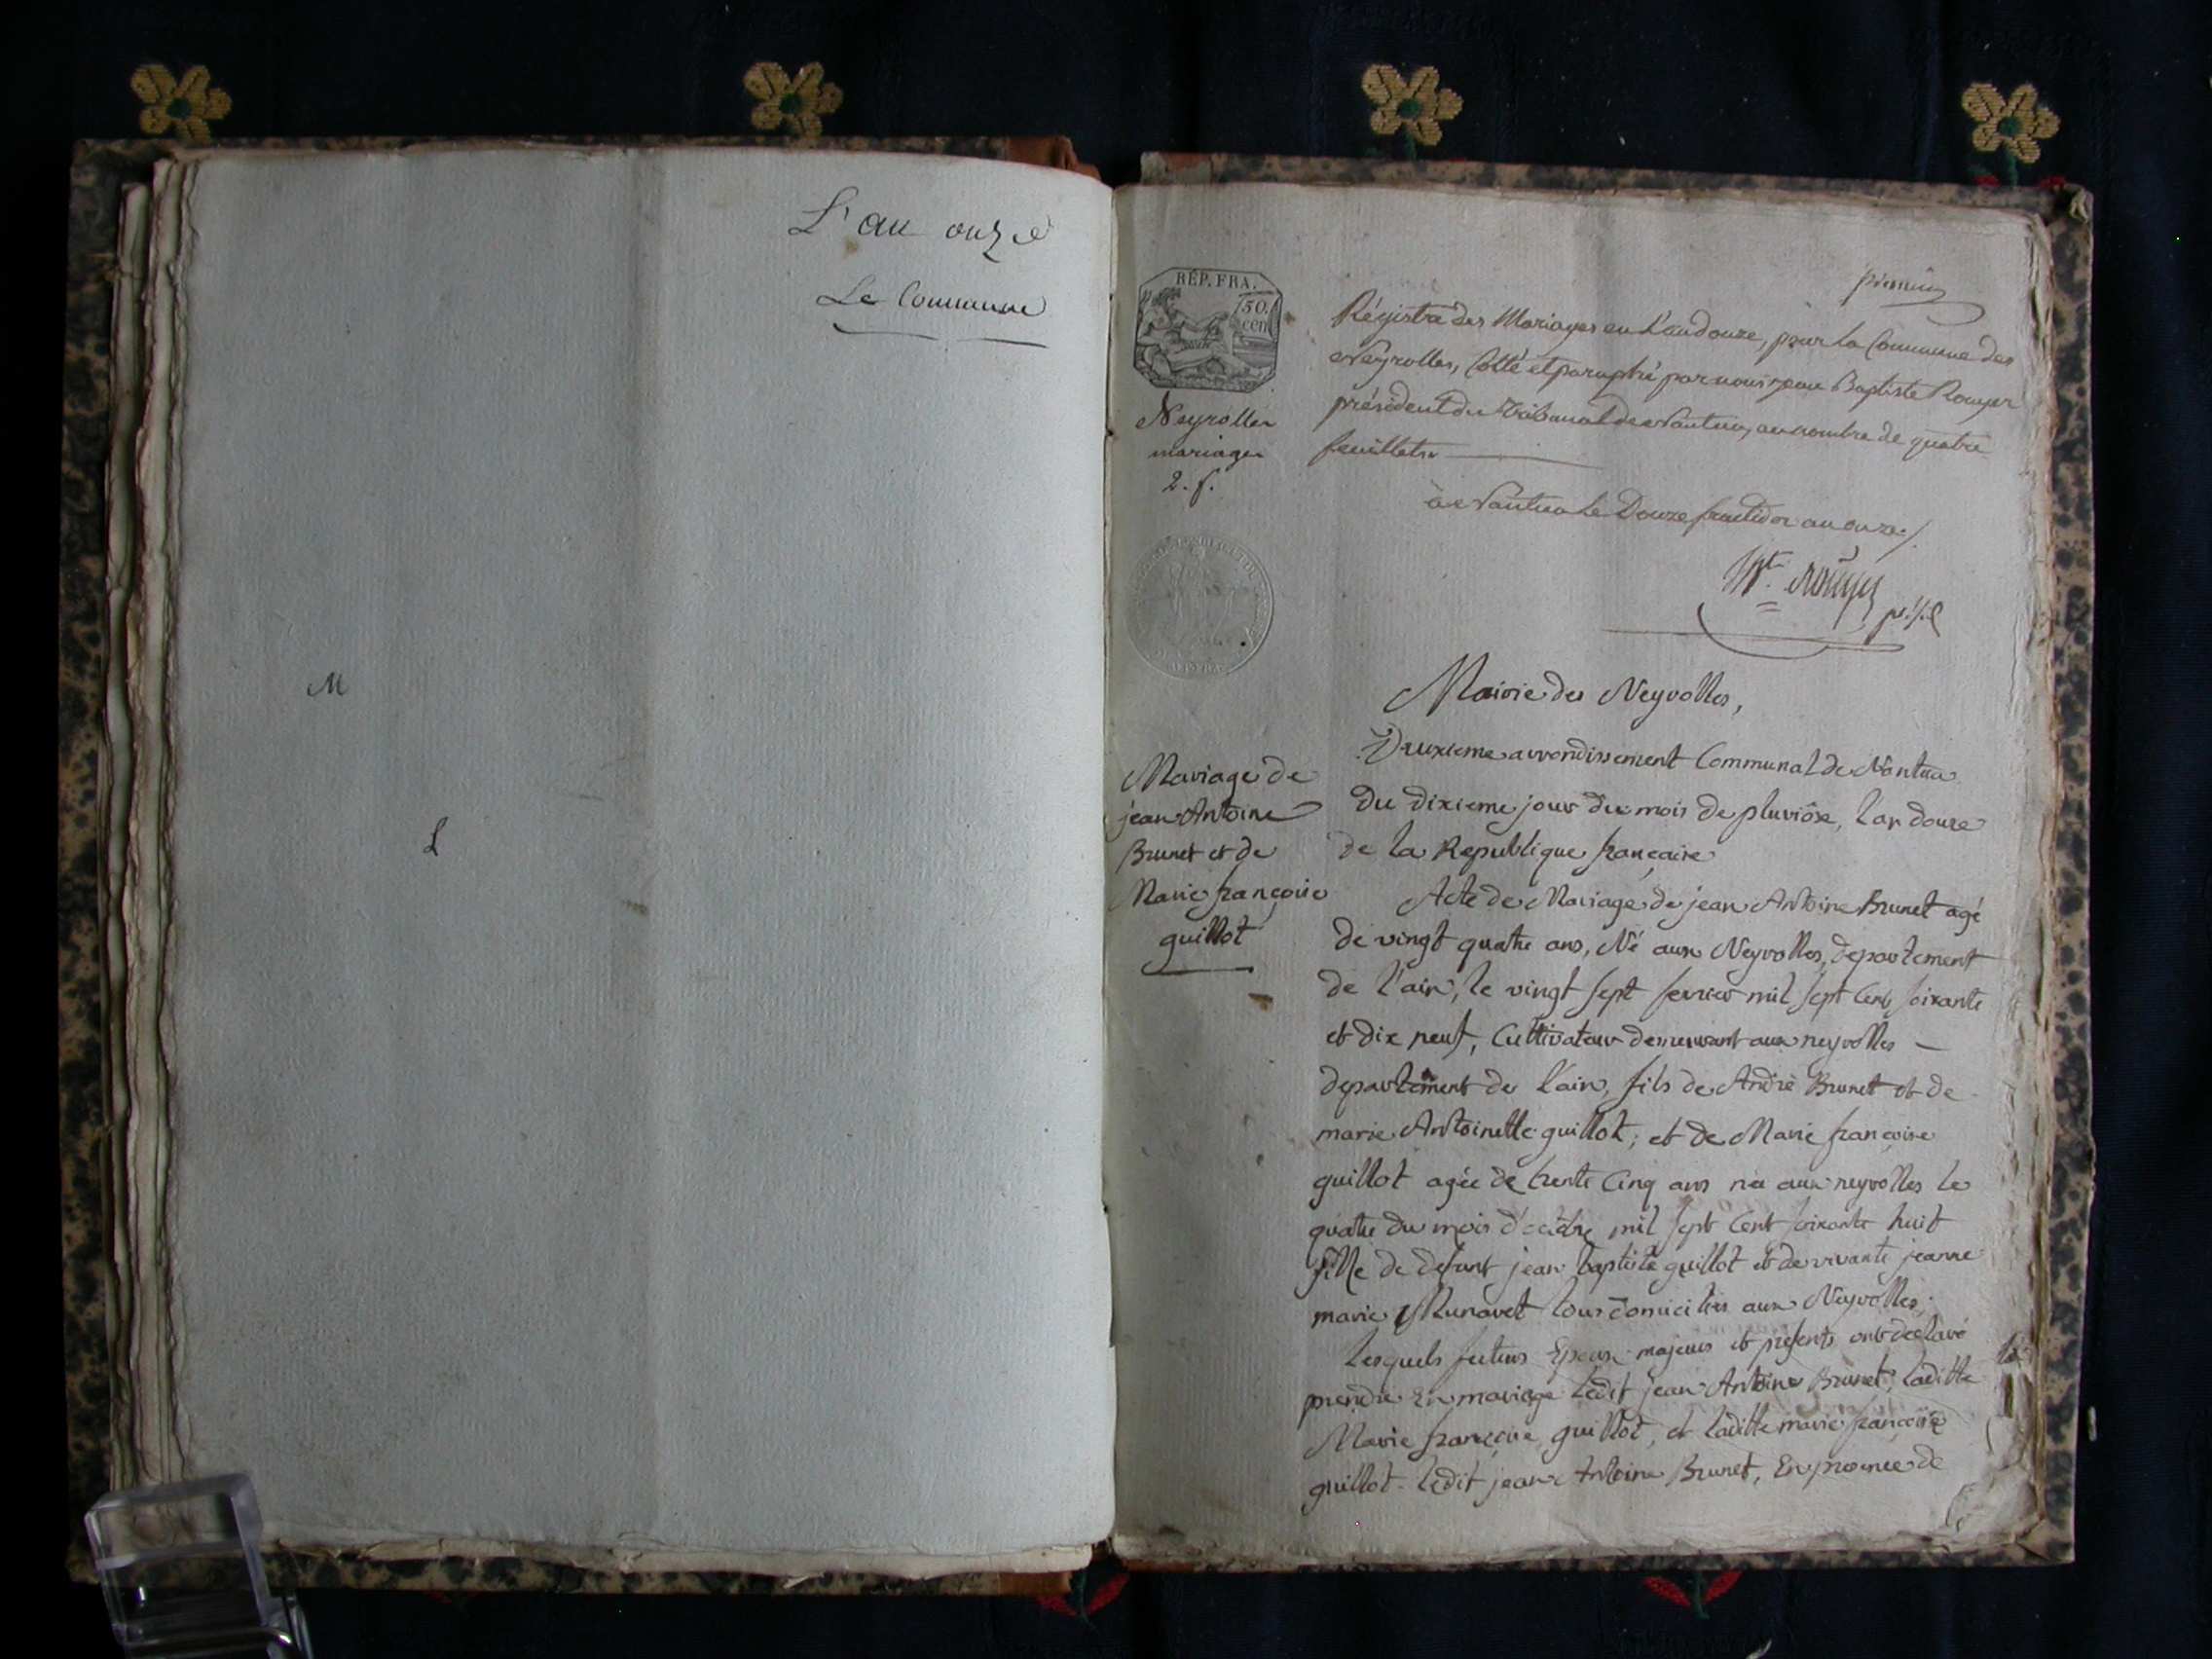 L'an onze
Le Commune
M
L
premier
RÉP. FRA.
50.
cen
Neyrolles
mariages
2. f.
Régistre des Mariages en L'an douze, pour la Commune des
Neyrolles, Cotté et paraphé par nous jean Baptiste Rouyer
président du Tribunal de Nantua, au nombre de quatre
feuillets.
à Nantua Le Douze fructidor an onze./.
Bte. Rouyer
Mairie des Neyrolles,
Deuxieme arrondissement Communal de Nantua
Du dixieme jour du mois de pluviôse, l'an douze
de la Republique françaire
Mariage de
jean Antoine
Brunet et de
Marie françoise
guillot
Acte de Mariage de jean Antoine Brunet agé
de vingt quatre ans, Né aux Neyrolles, departement
de l'ain, le vingt sept fevrier mil sept Cent soixante
et dix neuf, Cultivateur demeurant aux neyrolles —
departement de l'ain, fils de André Brunet et de
marie Antoinette guillot; et de Marie françoise
guillot agée de trente Cinq ans née aux neyrolles le
quatre du mois d'octobre mil sept Cent soixante huit
fille de defunt jean baptiste guillot et de vivante jeanne
marie Munavet tous domiciliés aux Neyrolles;
Lesquels futurs Epoux majeurs et presents ont declaré
prendre En mariage Ledit jean Antoine Brunet, laditte
Marie françoise guillot, et laditte marie françoise
guillot - ledit jean Antoine Brunet, En presence de